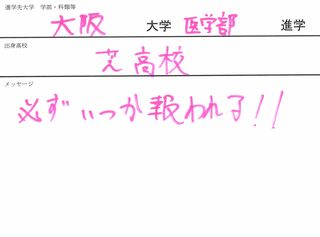 進学先大学 学部・科類等
大阪 大学 医学部 進学
出身高校
芝高校
メッセージ
必ずいつか報われる!!